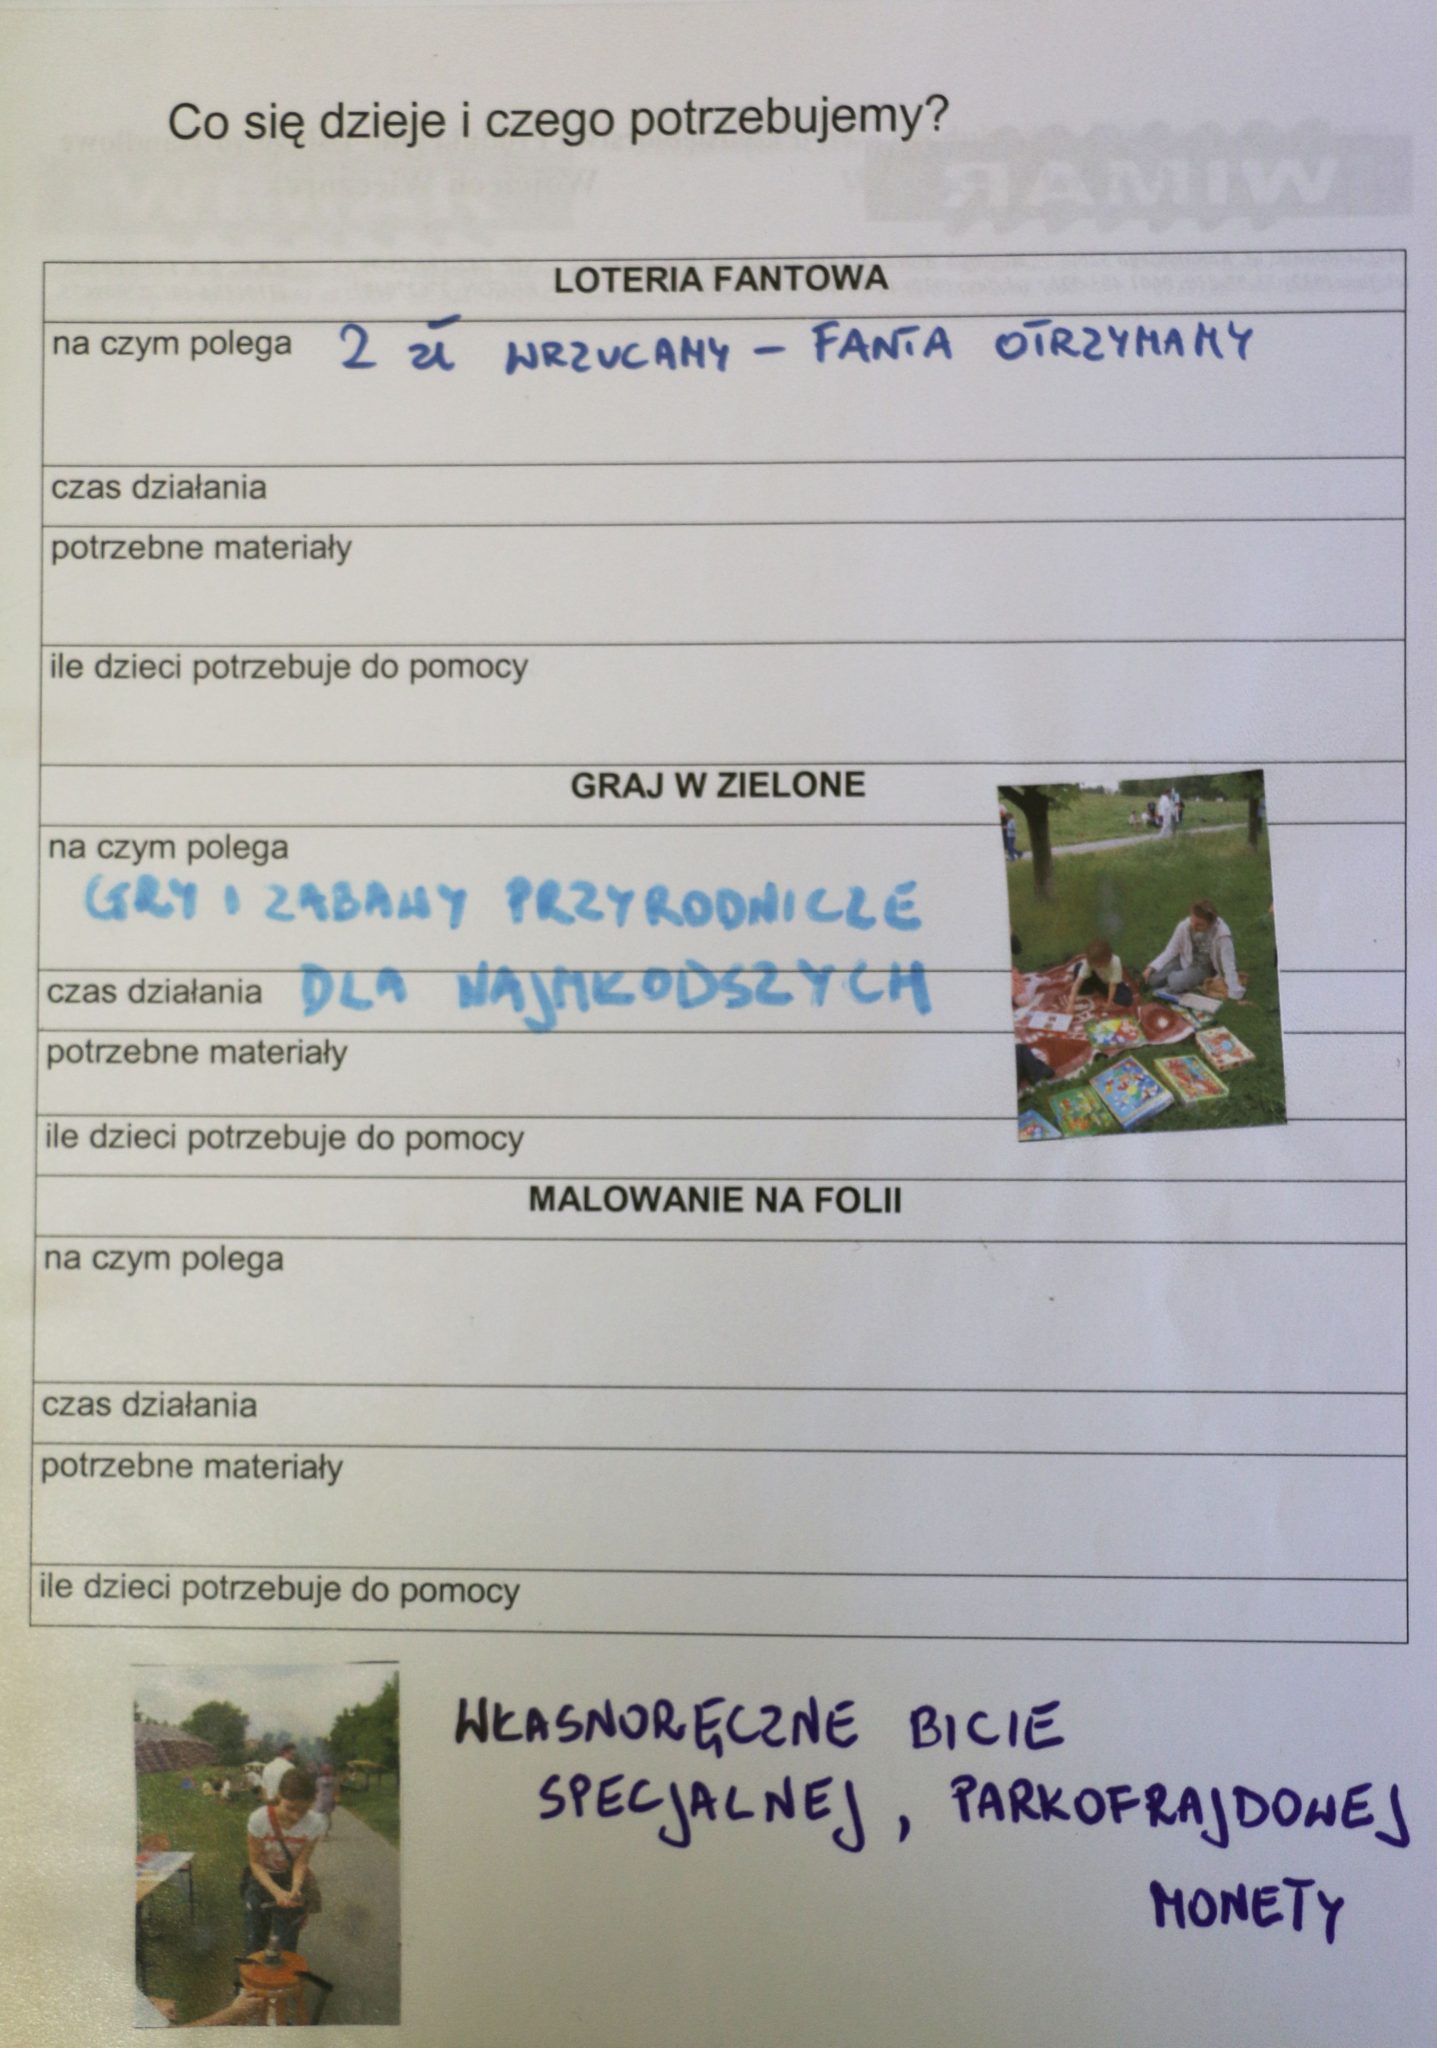 Co się dzieje i czego potrzebujemy?
WIMAR
LOTERIA FANTOWA
na czym polega 2 zł WRZUCAMY – FANTA OTRZYMAMY
czas działania
potrzebne materiały
ile dzieci potrzebuje do pomocy
GRAJ W ZIELONE
na czym polega
GRY I ZABAWY PRZYRODNICZE
czas działania DLA NAJMŁODSZYCH
potrzebne materiały
ile dzieci potrzebuje do pomocy
MALOWANIE NA FOLII
na czym polega
czas działania
potrzebne materiały
ile dzieci potrzebuje do pomocy
WŁASNORĘCZNE BICIE
SPECJALNEJ, PARKOFRAJDOWEJ
MONETY